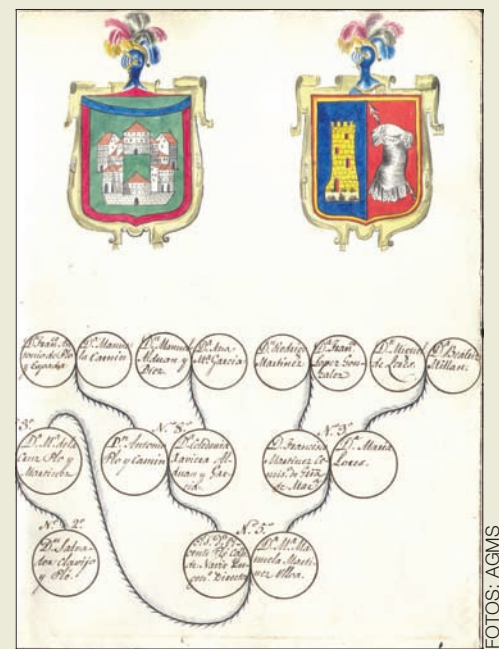 Dⁿ. Franᶜᵒ. An
tonio de Plo
y Espada
Dª. Manue
la Camin
Dⁿ. Manuel
Alduan y
Diez.
Dª. Ana
Mª. Garcia
Dⁿ. Rodrigo
Martinez
Dª. Franᶜᵃ.
Lopez Gon
zalez
Dⁿ. Miguel
de Lores.
Dª. Beatriz
Millan.
3º.
Dª. Mª. de la
Cruz Plo y
Martinez
Nº. 8º.
Dⁿ. Antonio
Plo y Camin
Dª. Celedonia
Xaviera Al
duan y Gar
cia.
Nº. 9º.
D. Francisco
Martinez Co
mis.º de
de Mar.ª
Dª. Maria
Lores.
Nº. 2º.
Dⁿ. Salva
dor Clavijo
y Plo.
Nº. 5º.
cente Plo
de Navio
Director
Dª. Mª. Ma
nuela Marti
nez Ulloa.
FOTOS: AGMS